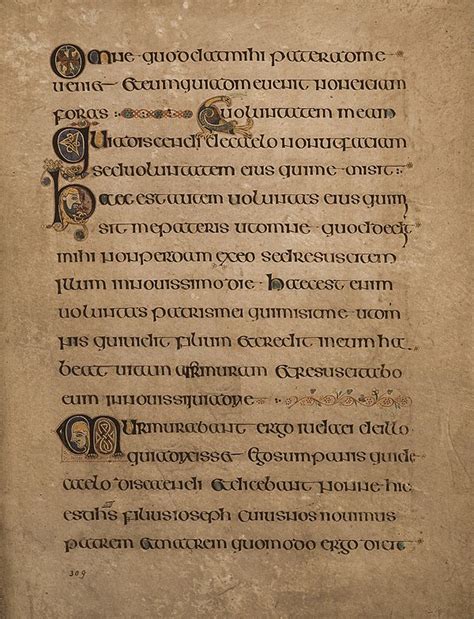 Omne quod dat mihi pater ad me
veniet et eum qui ad me venit non eiciam
foras voluntatem meam
Quia discendi de caelo non ut faciam
sed voluntatem eius qui me misit
haec est autem voluntas eius qui m
sit me patris ut omne quod dedit
mihi non perdam ex eo sed resuscitem
illum in novissimo die haec est enim
voluntas patris mei qui misit me ut om
nis qui vidit filium et credit in eum ha
beat vitam et resuscitabo
eum in novissimo die
Murmurabant ergo iudaei de illo
quia dixisset ego sum panis qui de
caelo discendi et dicebant nonne hic
est ihs filius ioseph cuius nos novimus
patrem et matrem quomodo ergo dicit
309